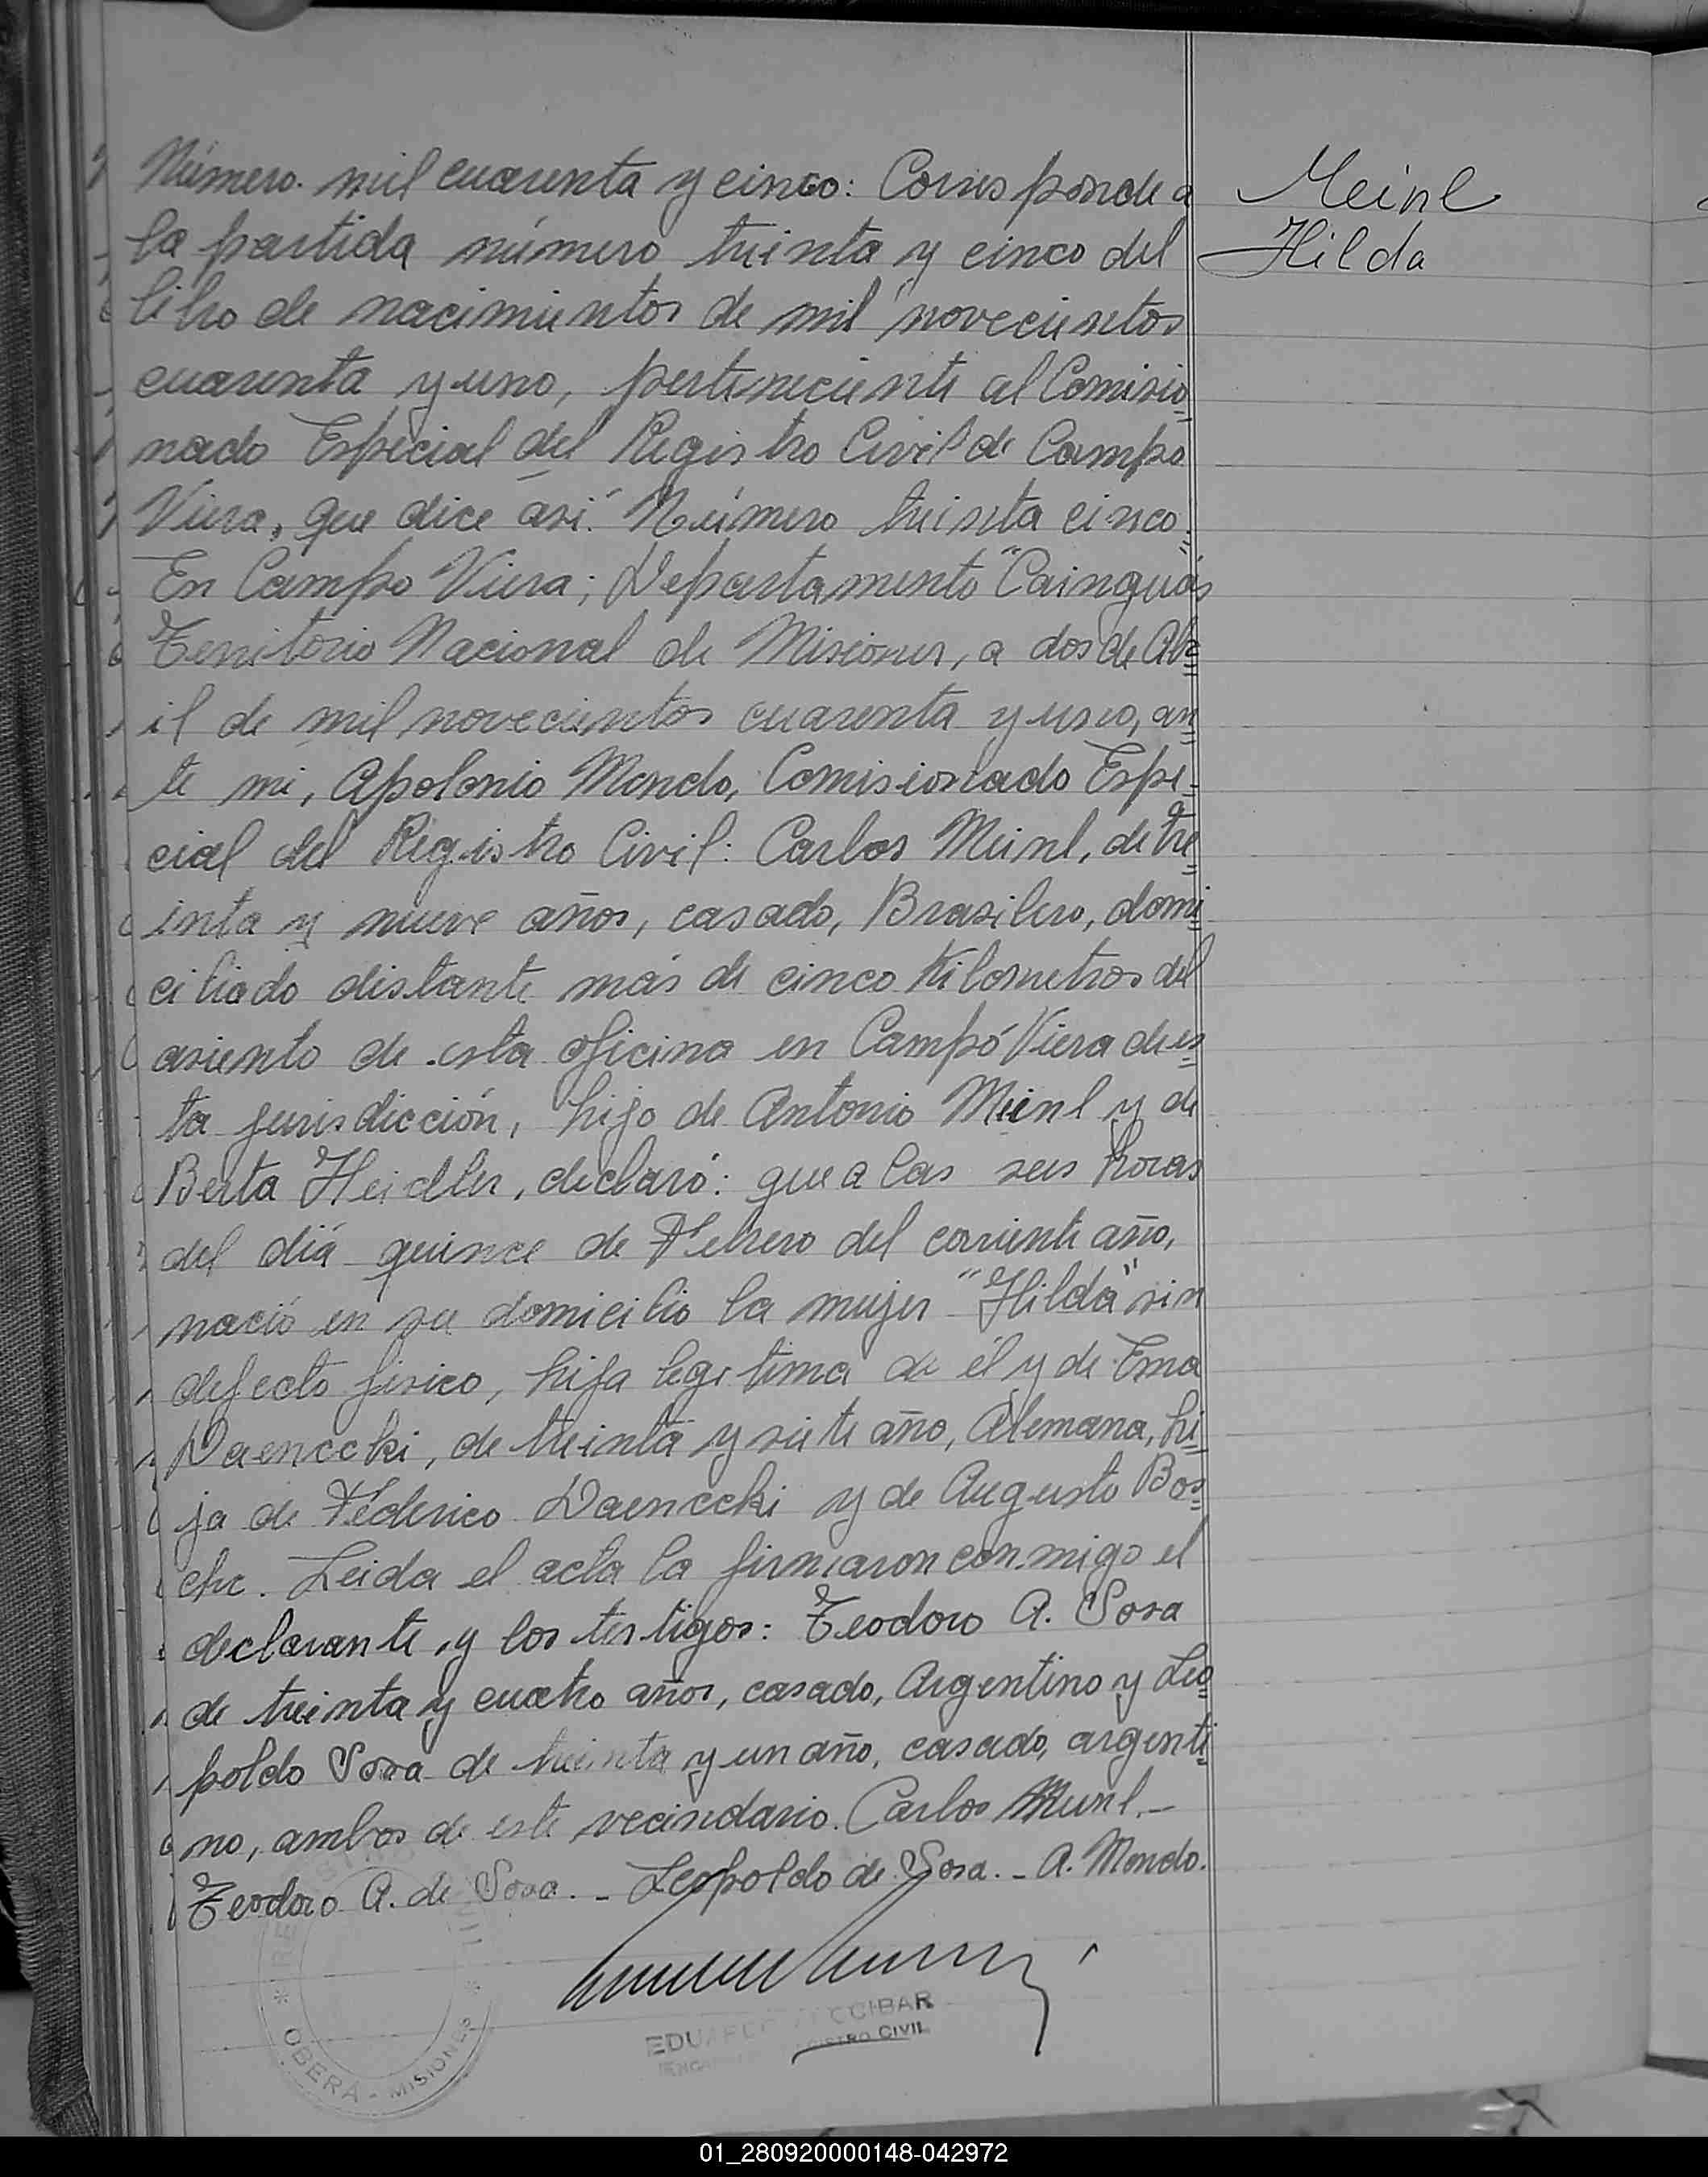 Número mil cuarenta y cinco: Corresponde a
la partida número treinta y cinco del
libro de nacimientos de mil novecientos
cuarenta y uno, perteneciente al Comisio=
nado Especial del Registro Civil de Campo
Viera, que dice así: Número treinta cinco=
En Campo Viera; Departamento "Cainguás
Territorio Nacional de Misiones, a dos de Abr=
il de mil novecientos cuarenta y uno, an=
te mi, Apolonio Mondo, Comisionado Espe=
cial del Registro Civil: Carlos Meinl, de tre=
inta y nueve años, casado, Brasilero, domi=
ciliado distante más de cinco Kilometros del
asiento de esta oficina en Campo Viera de es=
ta jurisdicción, hijo de Antonio Meinl y de
Berta Heidler, declaró: que a las seis horas
del día quince de Febrero del corriente año,
nació en su domicilio la mujer "Hilda" sin
defecto fisico, hija legitima de él y de Ema
Daenecki, de treinta y siete año, Alemana, hi=
ja de Federico Daenecki y de Augusto Bos=
che. Leida el acta la firmaron conmigo el
declarante y los testigos: Teodoro A. Sosa
de treinta y cuatro años, casado, Argentino y Leo=
poldo Sosa de treinta y un año, casado, argenti=
no, ambos de este vecindario. Carlos Meinl.-
Teodoro A. de Sosa.- Leopoldo de Sosa.- A. Mondo.
Meinl
Hilda
OBERÁ - MISIONES
REGISTRO CIVIL
01_280920000148-042972